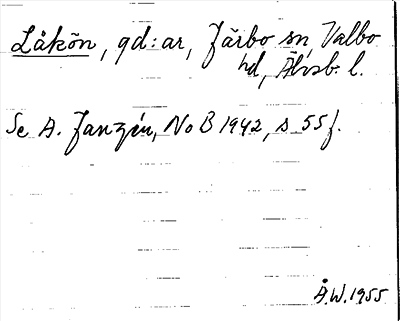 Låkön, gd:ar, Färbo sn, Valbo
hd, Älvsb. l.
Se A. Janzén, NoB 1942, s. 55 f.
Å.W. 1955